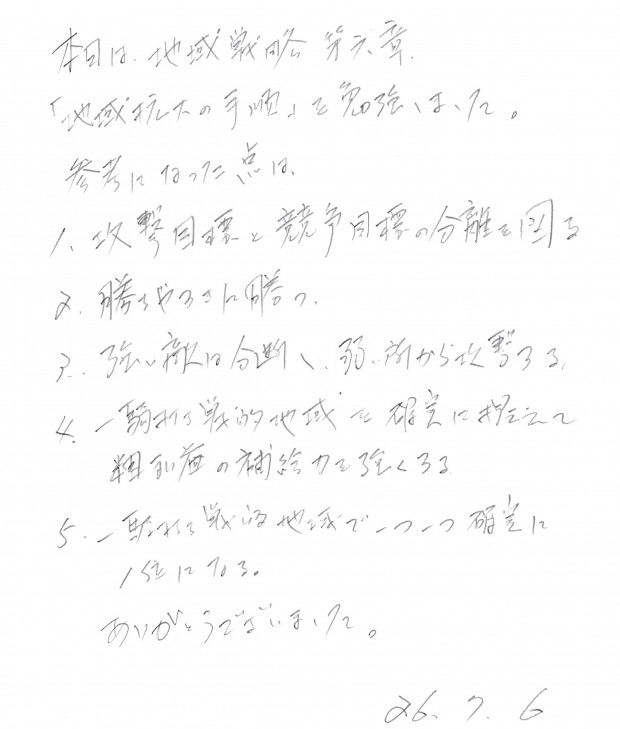 本日は、地域戦略 第六章、
「地域拡大の手順」を勉強しました。
参考になった点は、
1、攻撃目標と競争目標の分離を図る
2、勝ちやすきに勝つ、
3、強い敵は分断し、弱い所から攻撃する、
4、一騎打ち戦的地域を確実に押さえて
粗利益の補給力を強くする
5、一騎打ち戦的地域で一つ一つ確実に
1位になる。
ありがとうございました。
26. 7. 6